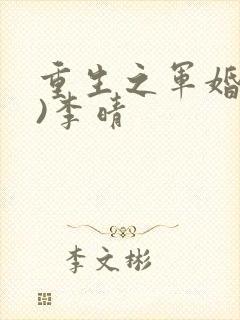 重生之军婚
)李晴
李文彬